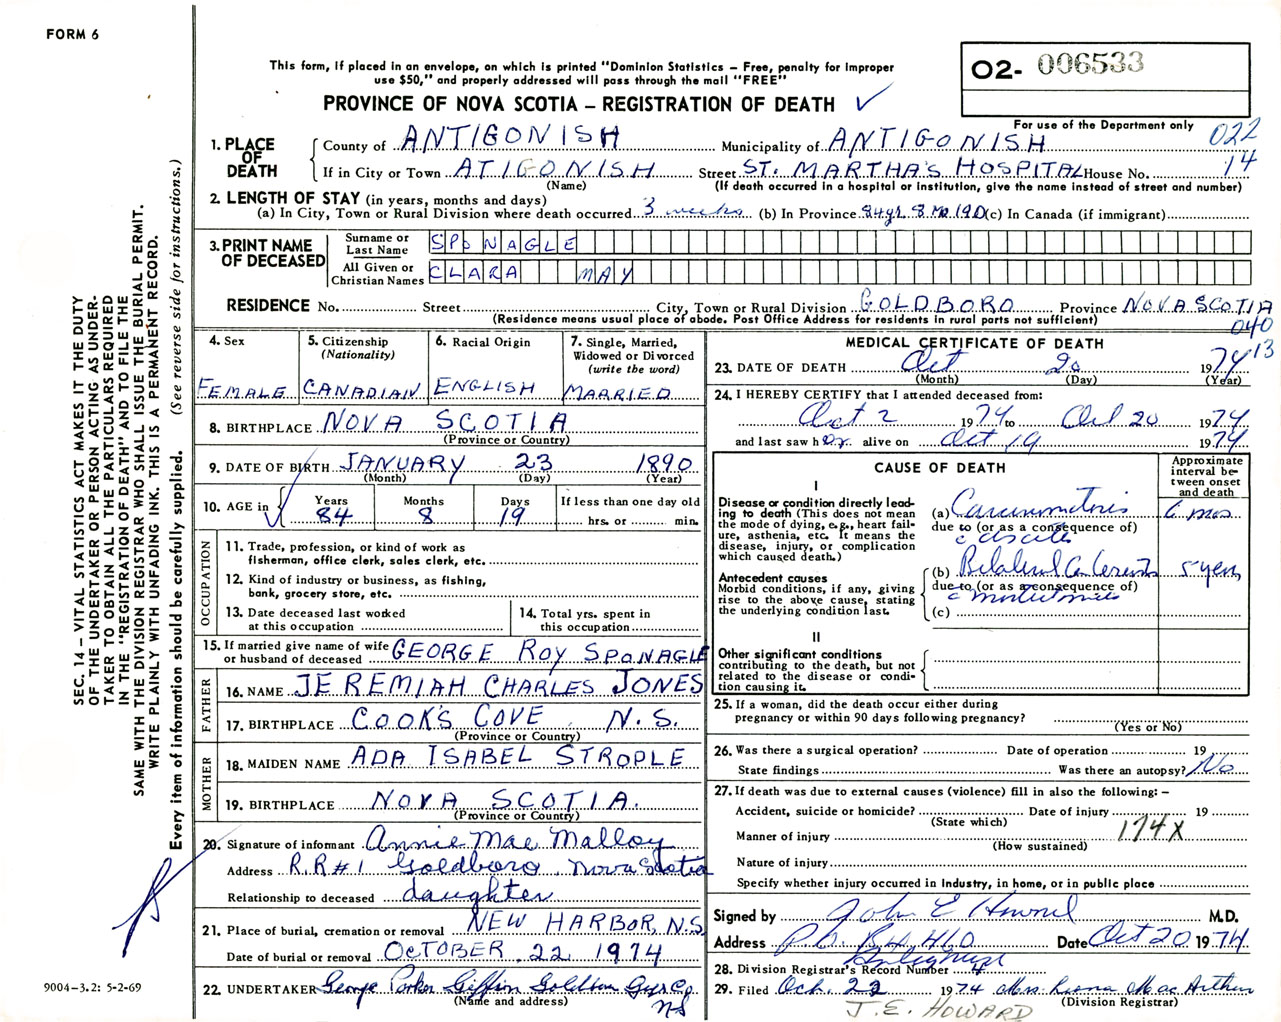 FORM 6
This form, if placed in an envelope, on which is printed "Dominion Statistics – Free, penalty for improper
use $50," and properly addressed will pass through the mail "FREE"
O2- 006533
PROVINCE OF NOVA SCOTIA – REGISTRATION OF DEATH ✓
For use of the Department only 022
14
1. PLACE OF DEATH
County of ANTIGONISH Municipality of ANTIGONISH
If in City or Town ATIGONISH Street ST. MARTHA'S HOSPITAL House No.
(Name) (If death occurred in a hospital or institution, give the name instead of street and number)
2. LENGTH OF STAY (in years, months and days)
(a) In City, Town or Rural Division where death occurred 3 weeks (b) In Province 84 yr. 8 Mo 19D (c) In Canada (if immigrant)
3. PRINT NAME OF DECEASED
Surname or Last Name SPONAGLE
All Given or Christian Names CLARA MAY
RESIDENCE No. Street City, Town or Rural Division GOLDBORO Province NOVA SCOTIA
(Residence means usual place of abode. Post Office Address for residents in rural parts not sufficient)
040
13
4. Sex FEMALE
5. Citizenship (Nationality) CANADIAN
6. Racial Origin ENGLISH
7. Single, Married, Widowed or Divorced (write the word) MARRIED
8. BIRTHPLACE NOVA SCOTIA
(Province or Country)
9. DATE OF BIRTH JANUARY 23 1890
(Month) (Day) (Year)
10. AGE in Years 84 Months 8 Days 19 If less than one day old hrs. or min.
OCCUPATION
11. Trade, profession, or kind of work as
fisherman, office clerk, sales clerk, etc.
12. Kind of industry or business, as fishing,
bank, grocery store, etc.
13. Date deceased last worked
at this occupation
14. Total yrs. spent in
this occupation
15. If married give name of wife
or husband of deceased GEORGE ROY SPONAGLE
FATHER
16. NAME JEREMIAH CHARLES JONES
17. BIRTHPLACE COOK'S COVE N.S.
(Province or Country)
MOTHER
18. MAIDEN NAME ADA ISABEL STROPLE
19. BIRTHPLACE NOVA SCOTIA.
(Province or Country)
20. Signature of informant Annie Mae Malloy
Address R.R#1 Goldboro, Nova Scotia
Relationship to deceased daughter
21. Place of burial, cremation or removal NEW HARBOR, N.S.
Date of burial or removal OCTOBER. 22 1974
22. UNDERTAKER George Parker Giffin Goldboro Guys Co. NS
(Name and address)
MEDICAL CERTIFICATE OF DEATH
23. DATE OF DEATH Oct 20 1974
(Month) (Day) (Year)
24. I HEREBY CERTIFY that I attended deceased from:
Oct 2 1974 to Oct 20 1974
and last saw her alive on Oct 19 1974
CAUSE OF DEATH
Approximate interval between onset and death
I
Disease or condition directly leading to death (This does not
mean the mode of dying, e.g., heart failure, asthenia, etc. It means the
disease, injury, or complication
which caused death.)
(a) Carcinomatosis 6 mos
due to (or as a consequence of)
c ascites
Antecedent causes
Morbid conditions, if any, giving
rise to the above cause, stating
the underlying condition last.
(b) Bilateral Ca 5 years
due to (or as a consequence of)
c mastectomies
(c)
II
Other significant conditions
contributing to the death, but not
related to the disease or condition causing it.
25. If a woman, did the death occur either during
pregnancy or within 90 days following pregnancy?
(Yes or No)
26. Was there a surgical operation? Date of operation 19
State findings Was there an autopsy? No
27. If death was due to external causes (violence) fill in also the following: –
Accident, suicide or homicide? Date of injury 19
(State which)
174X
Manner of injury
(How sustained)
Nature of injury
Specify whether injury occurred in industry, in home, or in public place
Signed by John E Howard M.D.
Address P.O. Box 460 Antigonish Date Oct 20 1974
28. Division Registrar's Record Number 4
29. Filed Oct. 22 1974 Mrs. Leona MacArthur
(Division Registrar)
J. E. HOWARD
SEC. 14 – VITAL STATISTICS ACT MAKES IT THE DUTY
OF THE UNDERTAKER OR PERSON ACTING AS UNDER-
TAKER TO OBTAIN ALL THE PARTICULARS REQUIRED
IN THE "REGISTRATION OF DEATH" AND TO FILE THE
SAME WITH THE DIVISION REGISTRAR WHO SHALL ISSUE THE BURIAL PERMIT.
WRITE PLAINLY WITH UNFADING INK. THIS IS A PERMANENT RECORD.
Every item of information should be carefully supplied. (See reverse side for instructions.)
9004-3.2: 5-2-69